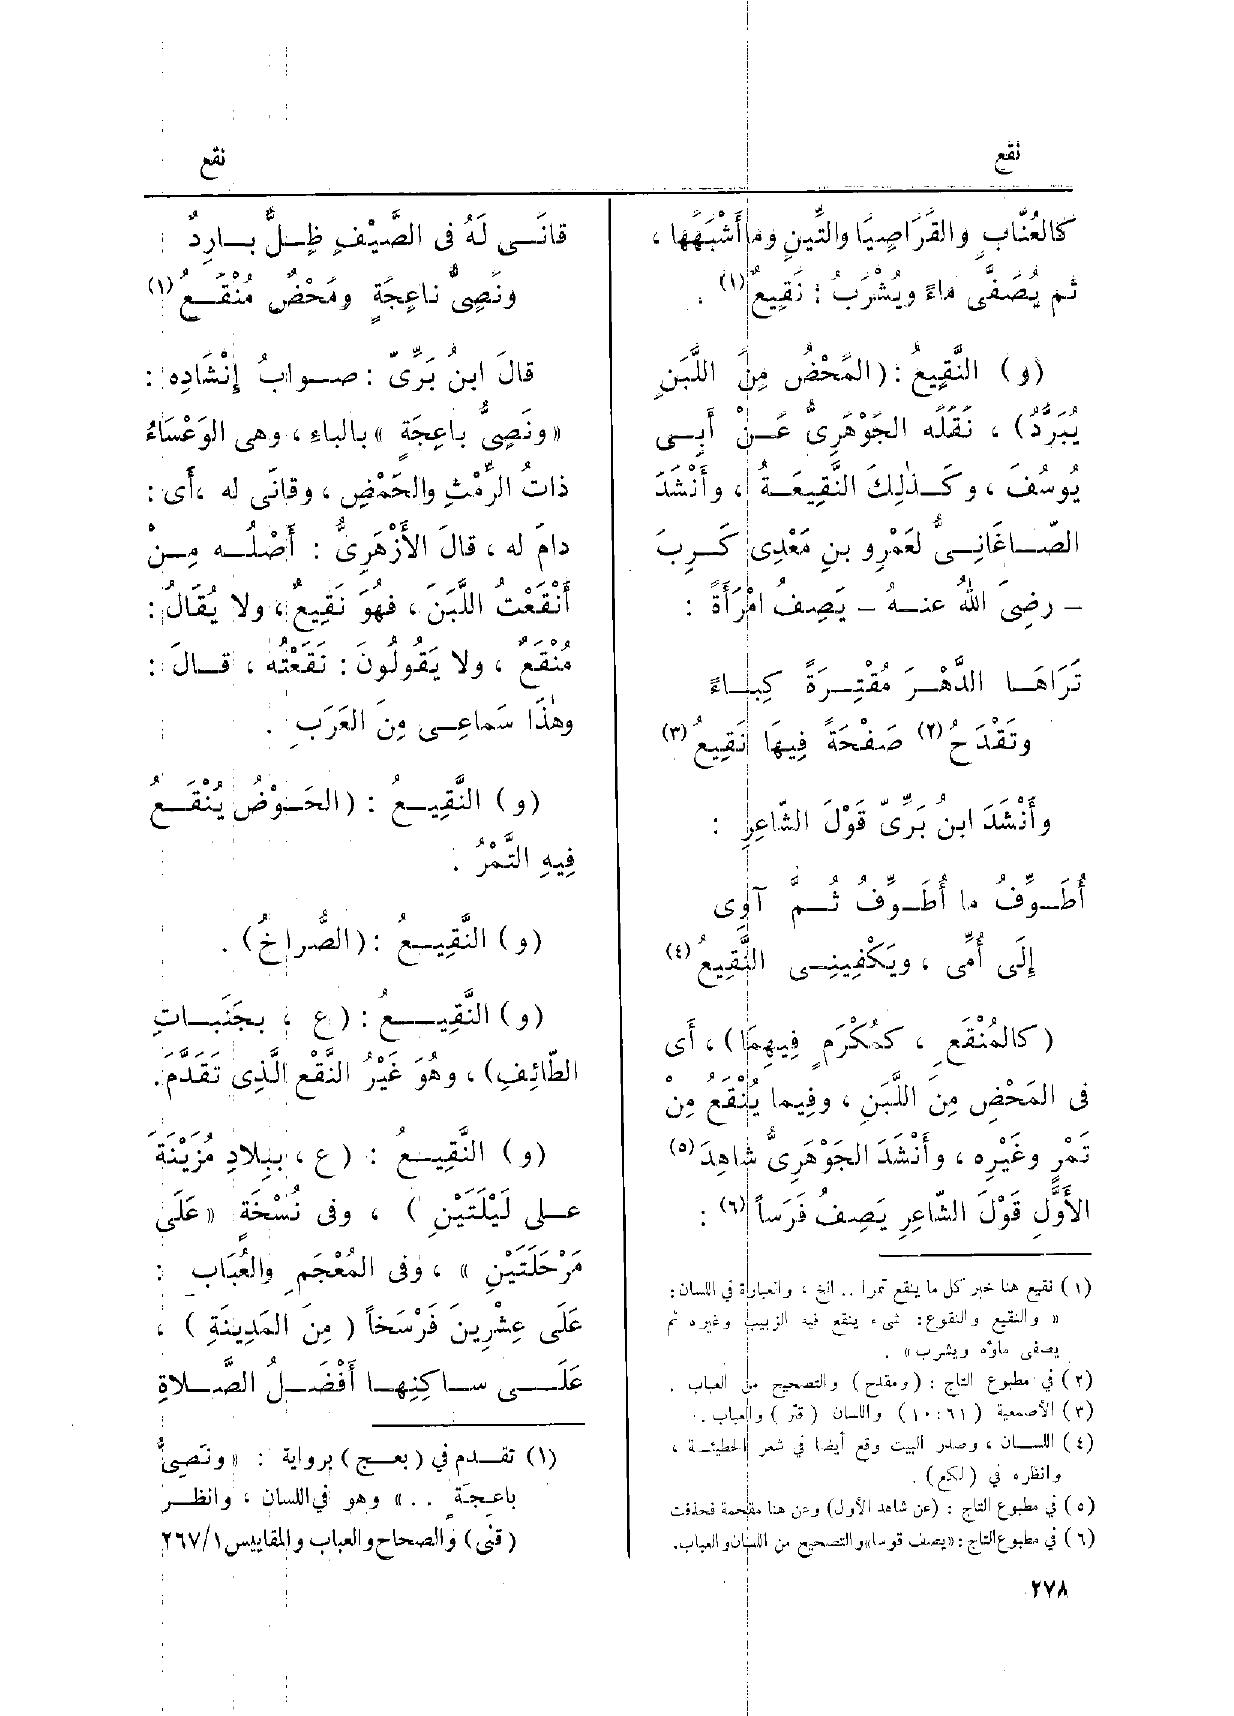 نقع
نقع
كالعُنَّابِ والقَرَاصِيَا والتِّينِ وما أَشْبَهَهَا ،
ثم يُصَفَّى ماءً ويُشْرَبُ : نَقِيعٌ (١) .
(و) النَّقِيعُ : (المَحْضُ مِنَ اللَّبَنِ
يُبَرَّدُ) ، نَقَلَه الجَوْهَرِىُّ عَنْ أَبِى
يُوسُفَ ، وكَذٰلِكَ النَّقِيعَةُ ، وأَنْشَدَ
الصّاغَانِىُّ لعَمْرِو بنِ مَعْدِى كَرِبَ
– رضِىَ اللهُ عنهُ – يَصِفُ امْرَأَةً :
تَرَاهَا الدَّهْرَ مُقْتِرَةً كِبَاءً
وتَقْدَحُ (٢) صَفْحَةً فِيهَا نَقِيعُ (٣)
وأَنْشَدَ ابنُ بَرِّىّ قَوْلَ الشّاعِرِ :
أُطَوِّفُ ما أُطَوِّفُ ثُمَّ آوِى
إِلَى أُمِّى ، ويَكْفِينِى النَّقِيعُ (٤)
(كالمُنْقَعِ ، كمُكْرَمٍ فِيهِمَا) ، أَى
فى المَحْضِ مِنَ اللَّبَنِ ، وفِيما يُنْقَعُ مِنْ
تَمْرٍ وغَيْرِه ، وأَنْشَدَ الجَوْهَرِىُّ شاهِدَ (٥)
الأَوَّلِ قَوْلَ الشّاعِرِ يَصِفُ فَرَساً (٦) :
(١) نقيع هنا خبر كل ما ينقع تمرا .. الخ ، والعبارة في اللسان :
« والنقيع والنقوع : شىء ينقع فيه الزبيب وغيره ثم
يصفى ماؤه ويشرب» .
(٢) في مطبوع التاج : (ومقدح) والتصحيح من العباب .
(٣) الأصمعية (٦١ : ١٠) واللسان (قتر) والعباب .
(٤) اللسان ، وصدر البيت وقع أيضا في شعر الحطيئة ،
وانظره في (لكع) .
(٥) في مطبوع التاج : (عن شاهد الأول) وعن هنا مقحمة فحذفت
(٦) في مطبوع التاج : «يصف قوسا» والتصحيح من اللسان والعباب.
قانَى لَهُ فى الصَّيْفِ ظِلٌّ بارِدٌ
ونَصِىُّ ناعِجَةٍ ومَحْضٌ مُنْقَعُ (١)
قالَ ابنُ بَرِّىّ : صوابُ إِنْشَادِه :
«ونَصِىُّ باعِجَةٍ » بالباءِ ، وهى الوَعْسَاءُ
ذاتُ الرِّمْثِ والحَمْضِ ، وقانَى له ، أَى :
دامَ له ، قالَ الأَزْهَرِىُّ : أَصْلُه مِنْ
أَنْقَعْتُ اللَّبَنَ ، فهُوَ نَقِيعٌ ، ولا يُقَالُ :
مُنْقَعٌ ، ولا يَقُولُونَ : نَقَعْتُه ، قالَ :
وهٰذَا سَماعِى مِنَ العَرَبِ .
(و) النَّقِيعُ : (الحَوْضُ يُنْقَعُ
فِيهِ التَّمْرُ .
(و) النَّقِيعُ : (الصُّراخُ) .
(و) النَّقِيعُ : (ع ، بجَنَباتِ
الطّائِفِ) ، وهُوَ غَيْرُ النَّقْعِ الَّذِى تَقَدَّمَ.
(و) النَّقِيعُ : (ع ، ببِلادِ مُزَيْنَةَ
على لَيْلَتَيْنِ ) ، وفى نُسْخَةٍ «عَلَى
مَرْحَلَتَيْنِ » ، وفى المُعْجَمِ والعُبَابِ :
عَلَى عِشْرِينَ فَرْسَخاً ( مِنَ المَدِينَةِ ) ،
عَلَى ساكِنِها أَفْضَلُ الصَّلاةِ
(١) تقدم في (بعج) برواية : «ونَصِىُّ
باعِجَةٍ ..» وهو في اللسان ، وانظر
(قنى) والصحاح والعباب والمقاييس ٢٦٧/١
٢٧٨